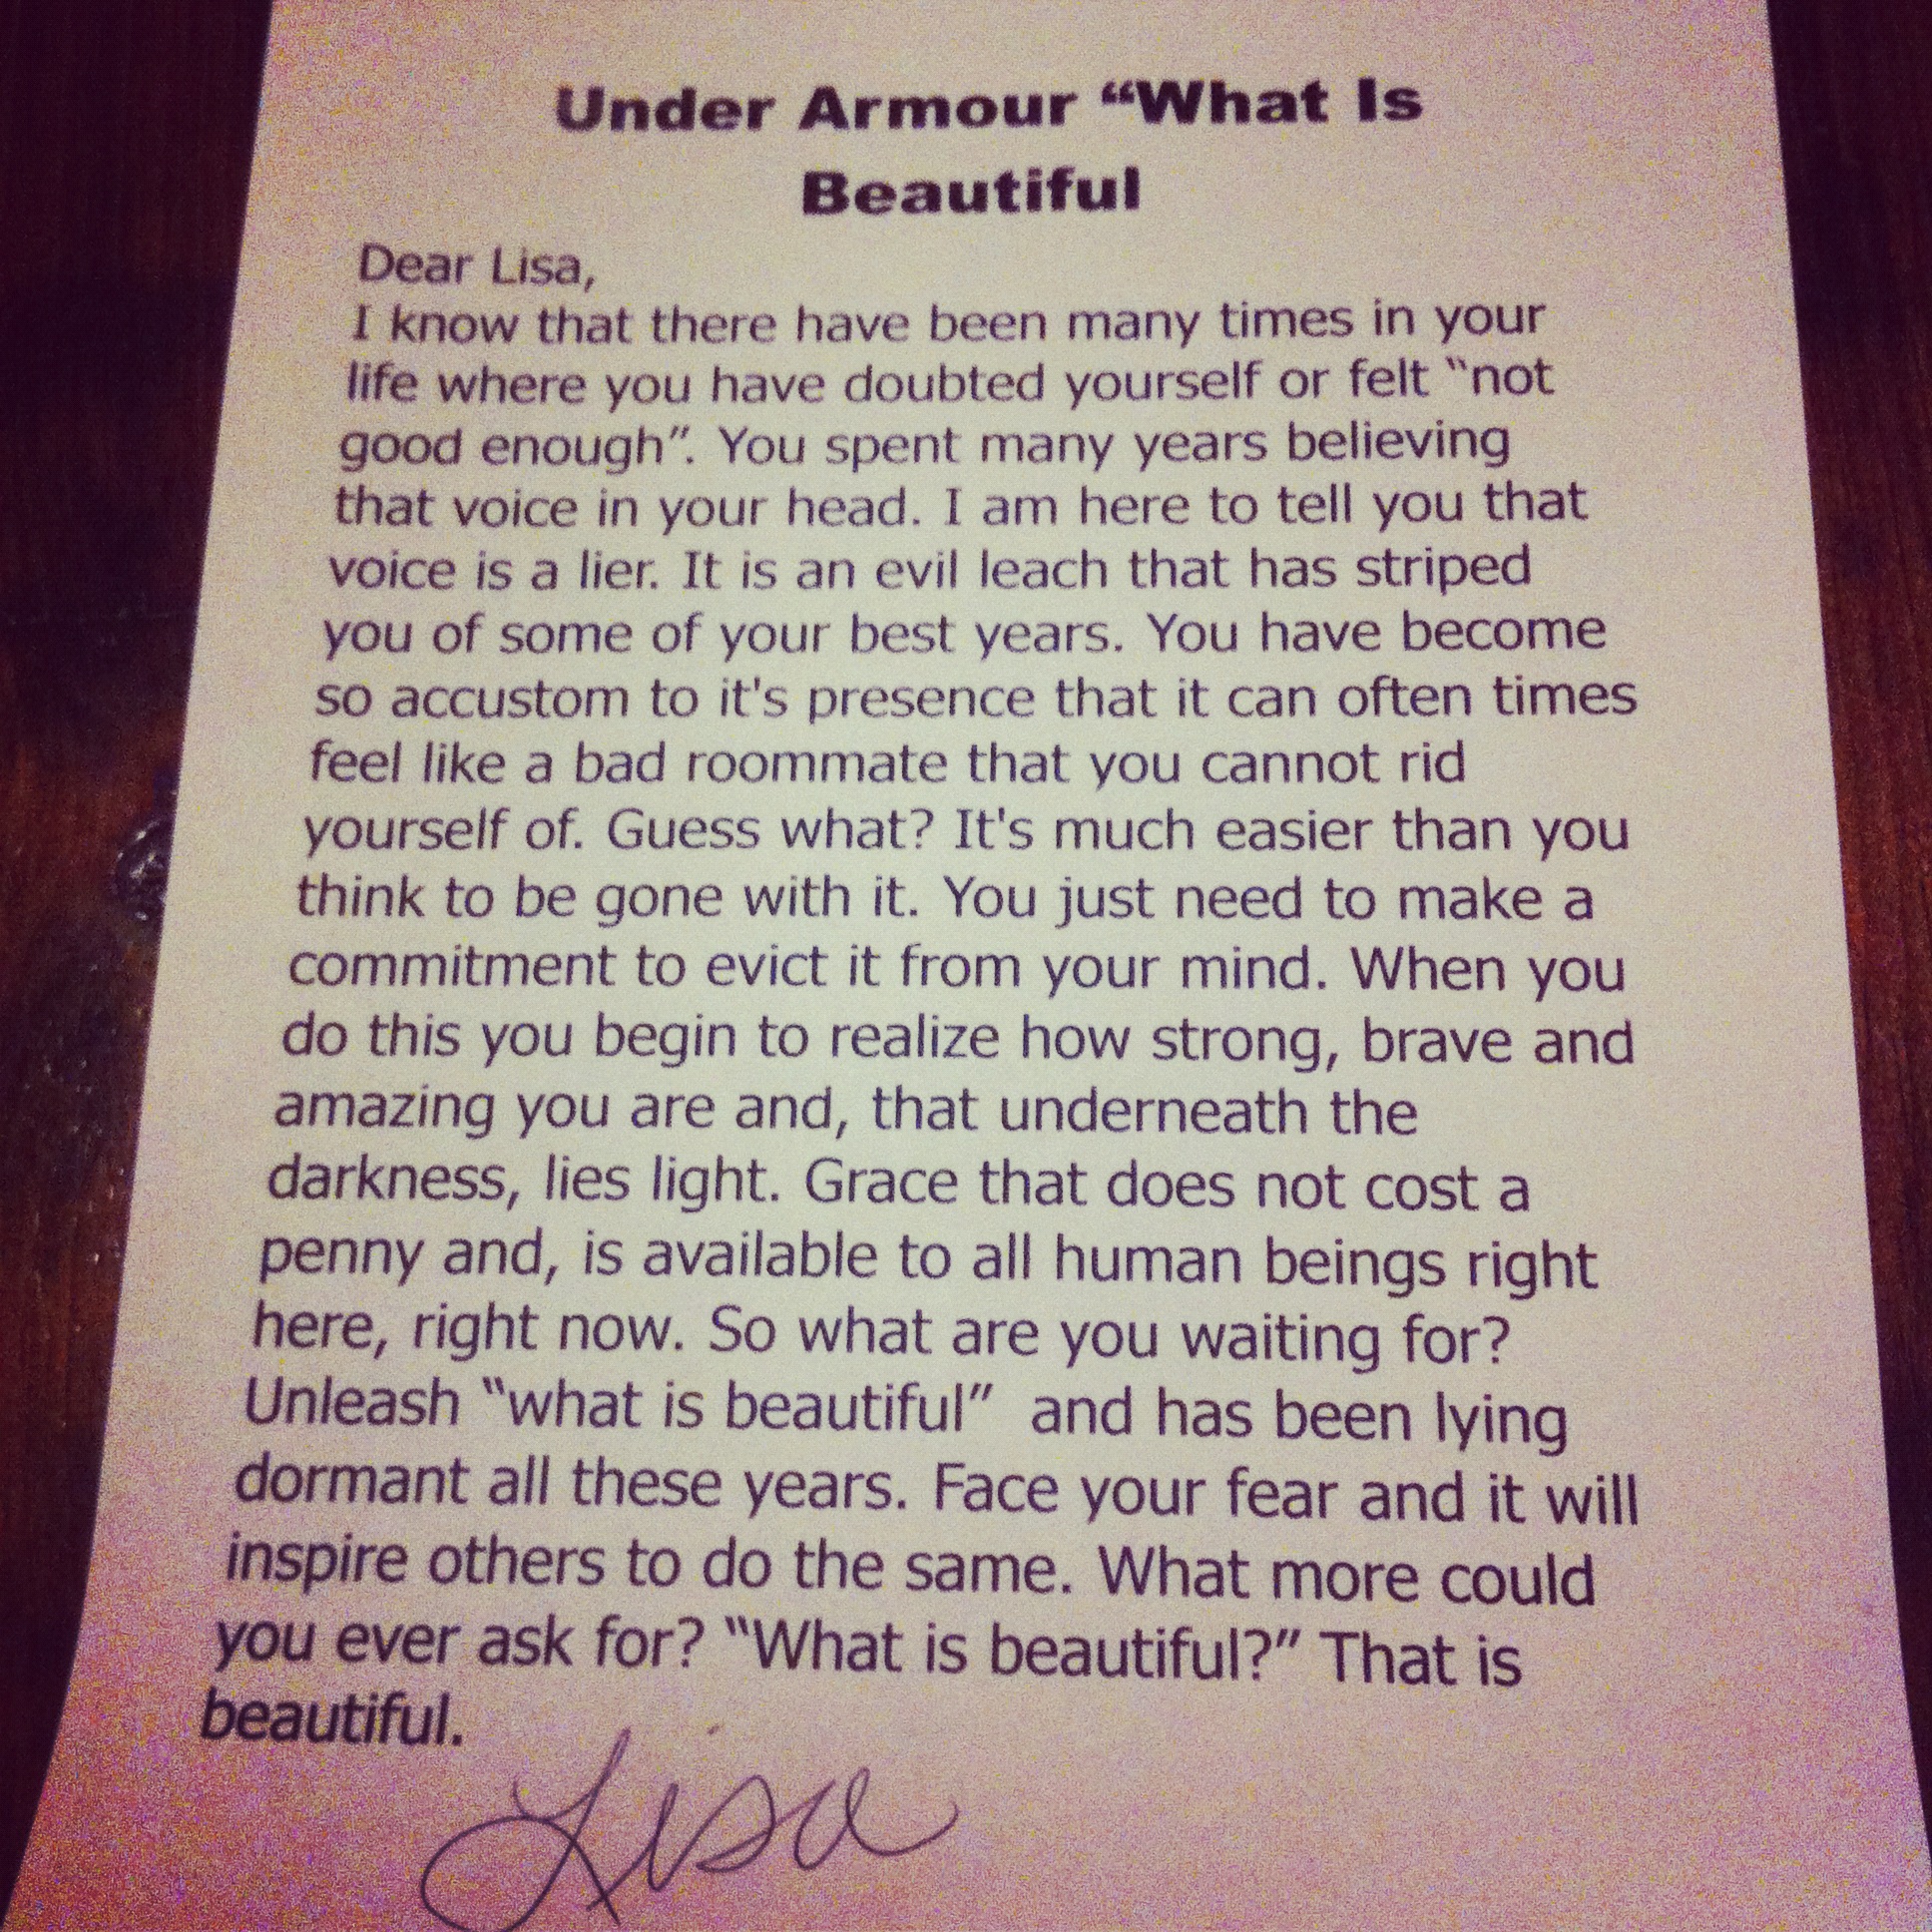 Under Armour “What Is
Beautiful
Dear Lisa,
I know that there have been many times in your
life where you have doubted yourself or felt “not
good enough”. You spent many years believing
that voice in your head. I am here to tell you that
voice is a lier. It is an evil leach that has striped
you of some of your best years. You have become
so accustom to it's presence that it can often times
feel like a bad roommate that you cannot rid
yourself of. Guess what? It's much easier than you
think to be gone with it. You just need to make a
commitment to evict it from your mind. When you
do this you begin to realize how strong, brave and
amazing you are and, that underneath the
darkness, lies light. Grace that does not cost a
penny and, is available to all human beings right
here, right now. So what are you waiting for?
Unleash “what is beautiful”  and has been lying
dormant all these years. Face your fear and it will
inspire others to do the same. What more could
you ever ask for? “What is beautiful?” That is
beautiful.
Lisa